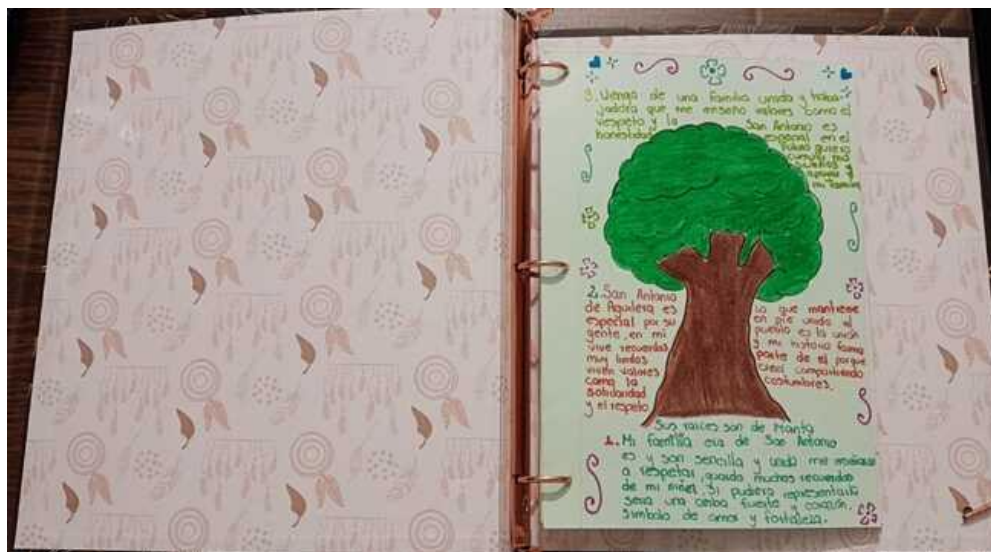 3. Vengo de una familia unida y traba-
jadora que me enseño valores como el
respeto y la
honestidad
San Antonio es
especial en el
futuro quiero
cumplir mis
sueños y
apoyar a
mi familia
2. San Antonio
de Aguilera es
especial por su
gente, en mi
vive recuerdos
muy lindos
viven valores
como la
solidaridad
y el respeto
Lo que mantiene
en pie unido al
pueblo es la unión
y mi historia forma
parte de el porque
crecí compartiendo
costumbres.
Sus raíces son de Manta
1. Mi familia era de San Antonio
es y son sencilla y unida me
a respetar, guardo muchos recuerdos
de mi niñez, Si pudiera representarla
seria una ceiba fuerte y corazón.
Simbolo de amor y fortaleza.